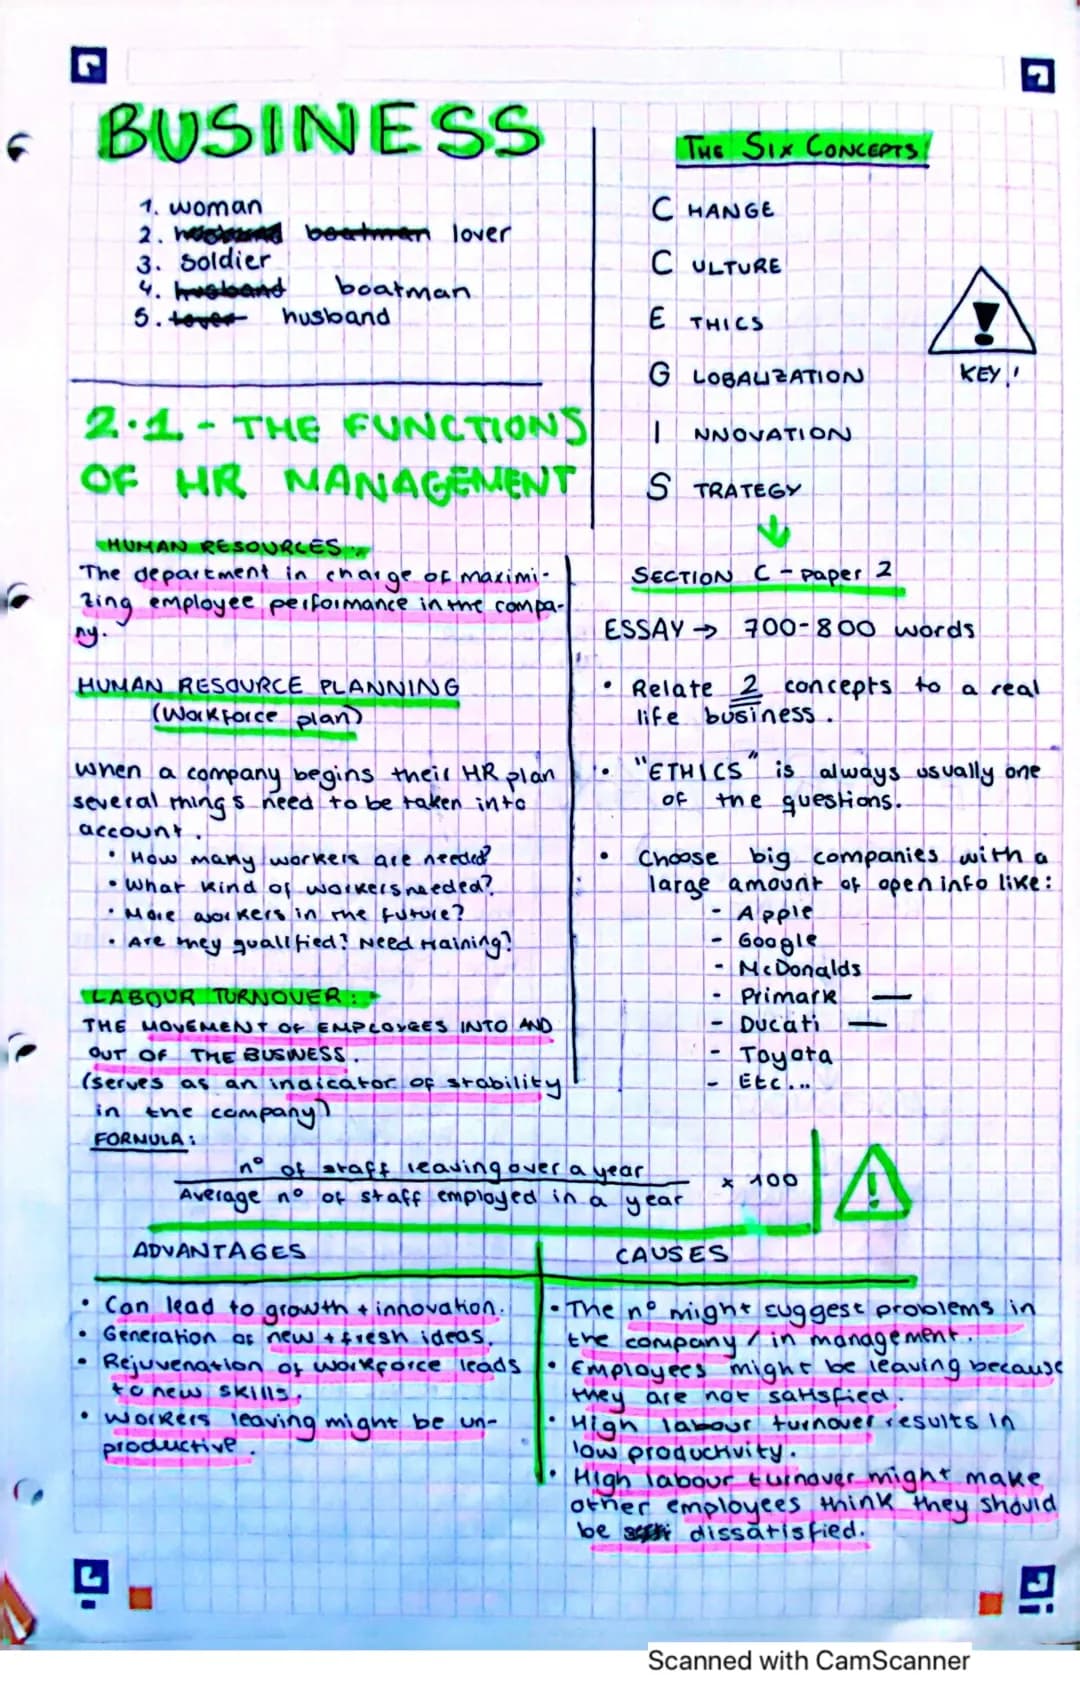 BUSINESS
1. woman
2. husband boatman lover
3. soldier
4. husband boatman
5. lover husband
2.1 - THE FUNCTIONS
OF HR MANAGEMENT
HUMAN RESOURCES:
The department in charge of maximi-
zing employee performance in the compa-
ny.
HUMAN RESOURCE PLANNING
(Workforce plan)
when a company begins their HR plan
several things need to be taken into
account.
• How many workers are needed?
• What kind of workers needed?
• More workers in the future?
• Are they qualified? Need training?
LABOUR TURNOVER:
THE MOVEMENT OF EMPLOYEES INTO AND
OUT OF THE BUSINESS.
(serves as an indicator of stability
in the company)
THE SIX CONCEPTS!
CHANGE
CULTURE
ETHICS
GLOBALIZATION
INNOVATION
STRATEGY
KEY!
SECTION C - paper 2
ESSAY → 700-800 words
• Relate 2 concepts to a real
life business.
• "ETHICS" is always usually one
of the questions.
• Choose big companies with a
large amount of open info like:
- Apple
- Google
- McDonalds
- Primark —
- Ducati —
- Toyota
- Etc...
FORMULA:
nº of staff leaving over a year
Average nº of staff employed in a year
x 100
ADVANTAGES
• Can lead to growth + innovation.
• Generation of new + fresh ideas.
• Rejuvenation of workforce leads
to new skills.
• Workers leaving might be un-
productive.
CAUSES
• The nº might suggest problems in
the company / in management.
• Employees might be leaving because
they are not satisfied.
• High labour turnover results in
low productivity.
• High labour turnover might make
other employees think they should
be dissatisfied.
Scanned with CamScanner